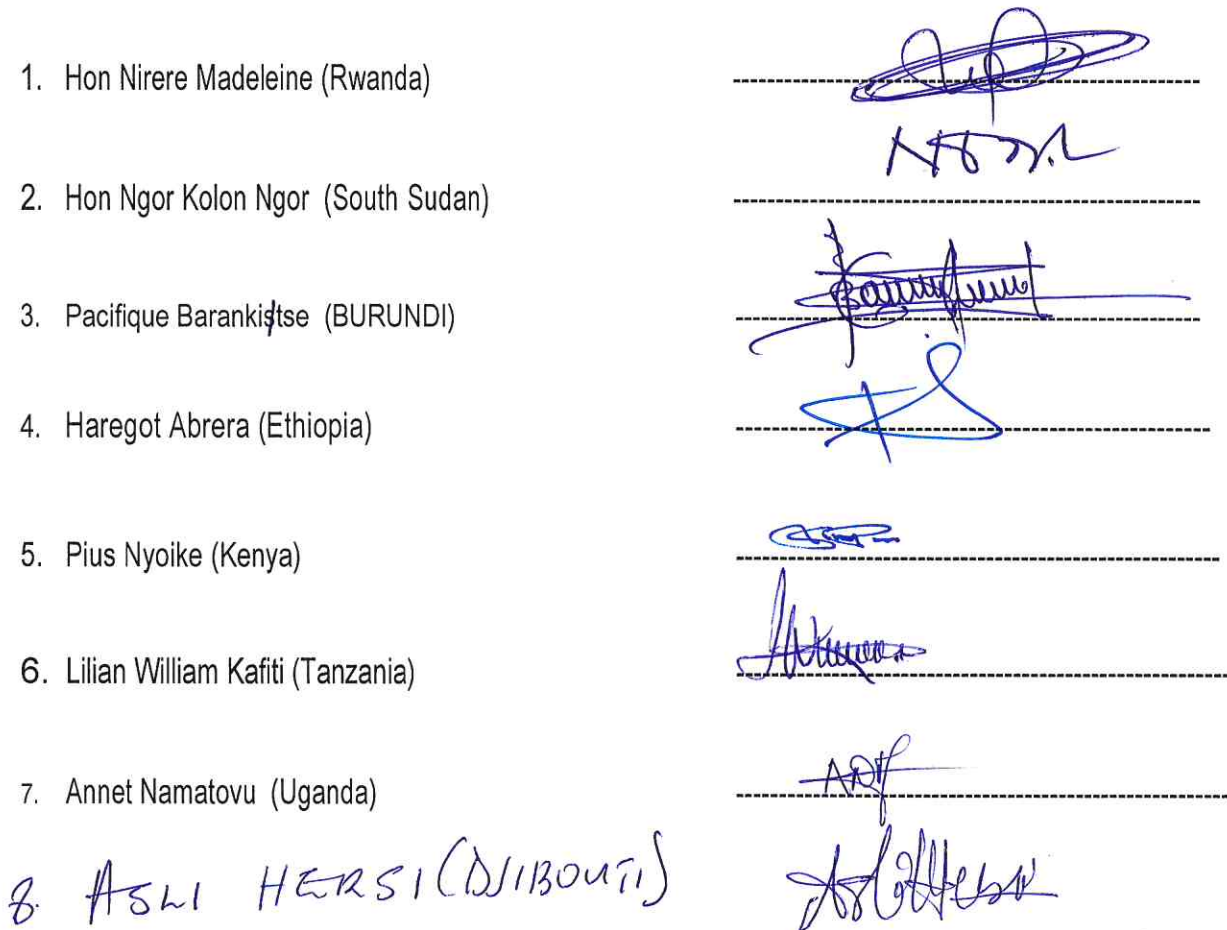 1. Hon Nirere Madeleine (Rwanda)
2. Hon Ngor Kolon Ngor (South Sudan)
3. Pacifique Barankistse (BURUNDI)
4. Haregot Abrera (Ethiopia)
5. Pius Nyoike (Kenya)
6. Lilian William Kafiti (Tanzania)
7. Annet Namatovu (Uganda)
8. ASLI HERSI (DJIBOUTI)